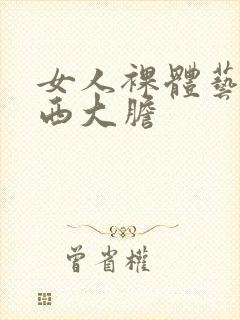 女人裸體藝
西大膽
曾省權